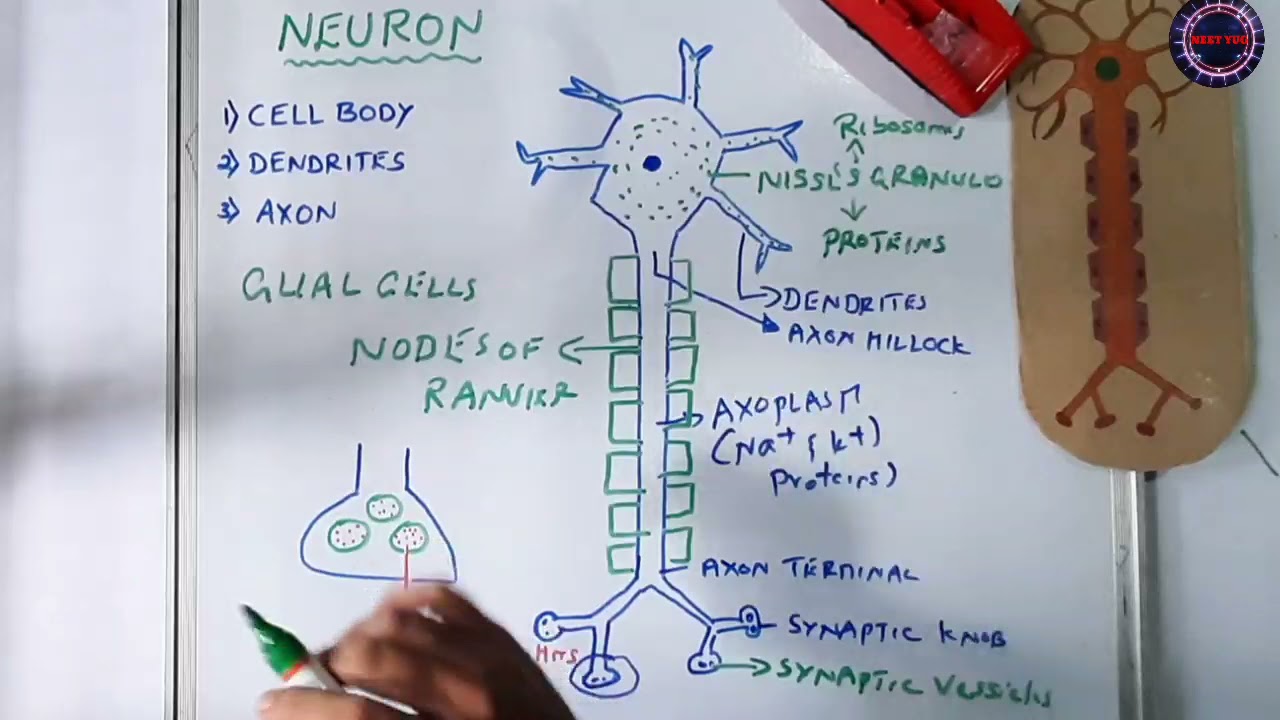 NEURON
1) CELL BODY
2) DENDRITES
3) AXON
GLIAL CELLS
NODES OF
RANVIER
Ribosomes
NISSL'S GRANULO
PROTEINS
DENDRITES
AXON HILLOCK
AXOPLASM
(Na+ & K+)
Proteins)
AXON TERMINAL
SYNAPTIC KNOB
SYNAPTIC Vessicles
NEET YUG